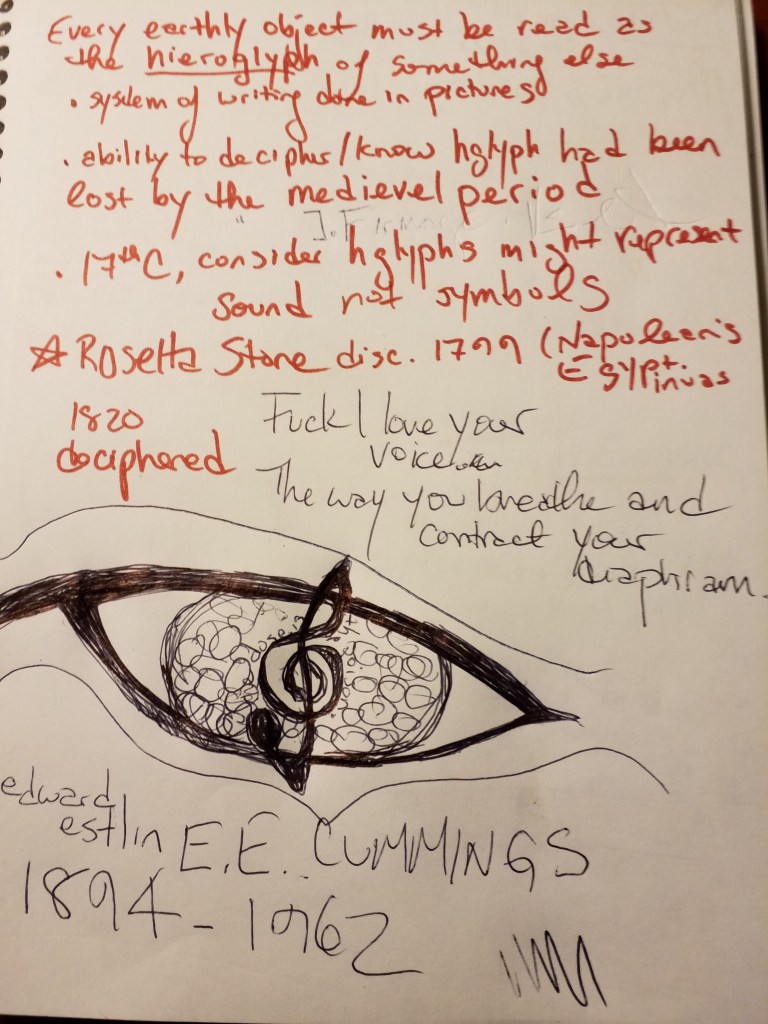 Every earthly object must be read as
the hieroglyph of something else
• system of writing done in pictures
• ability to decipher/know hglyph had been
lost by the medievel period
• 17thC, consider hglyphs might represent
sound not symbols
☆ Rosetta Stone disc. 1799 (Napolean's
Egypt. invas
1820
deciphered
Fuck I love your
voice
The way you breathe and
contract your
diaphram.
edward
estlin E.E. CUMMINGS
1894 - 1962